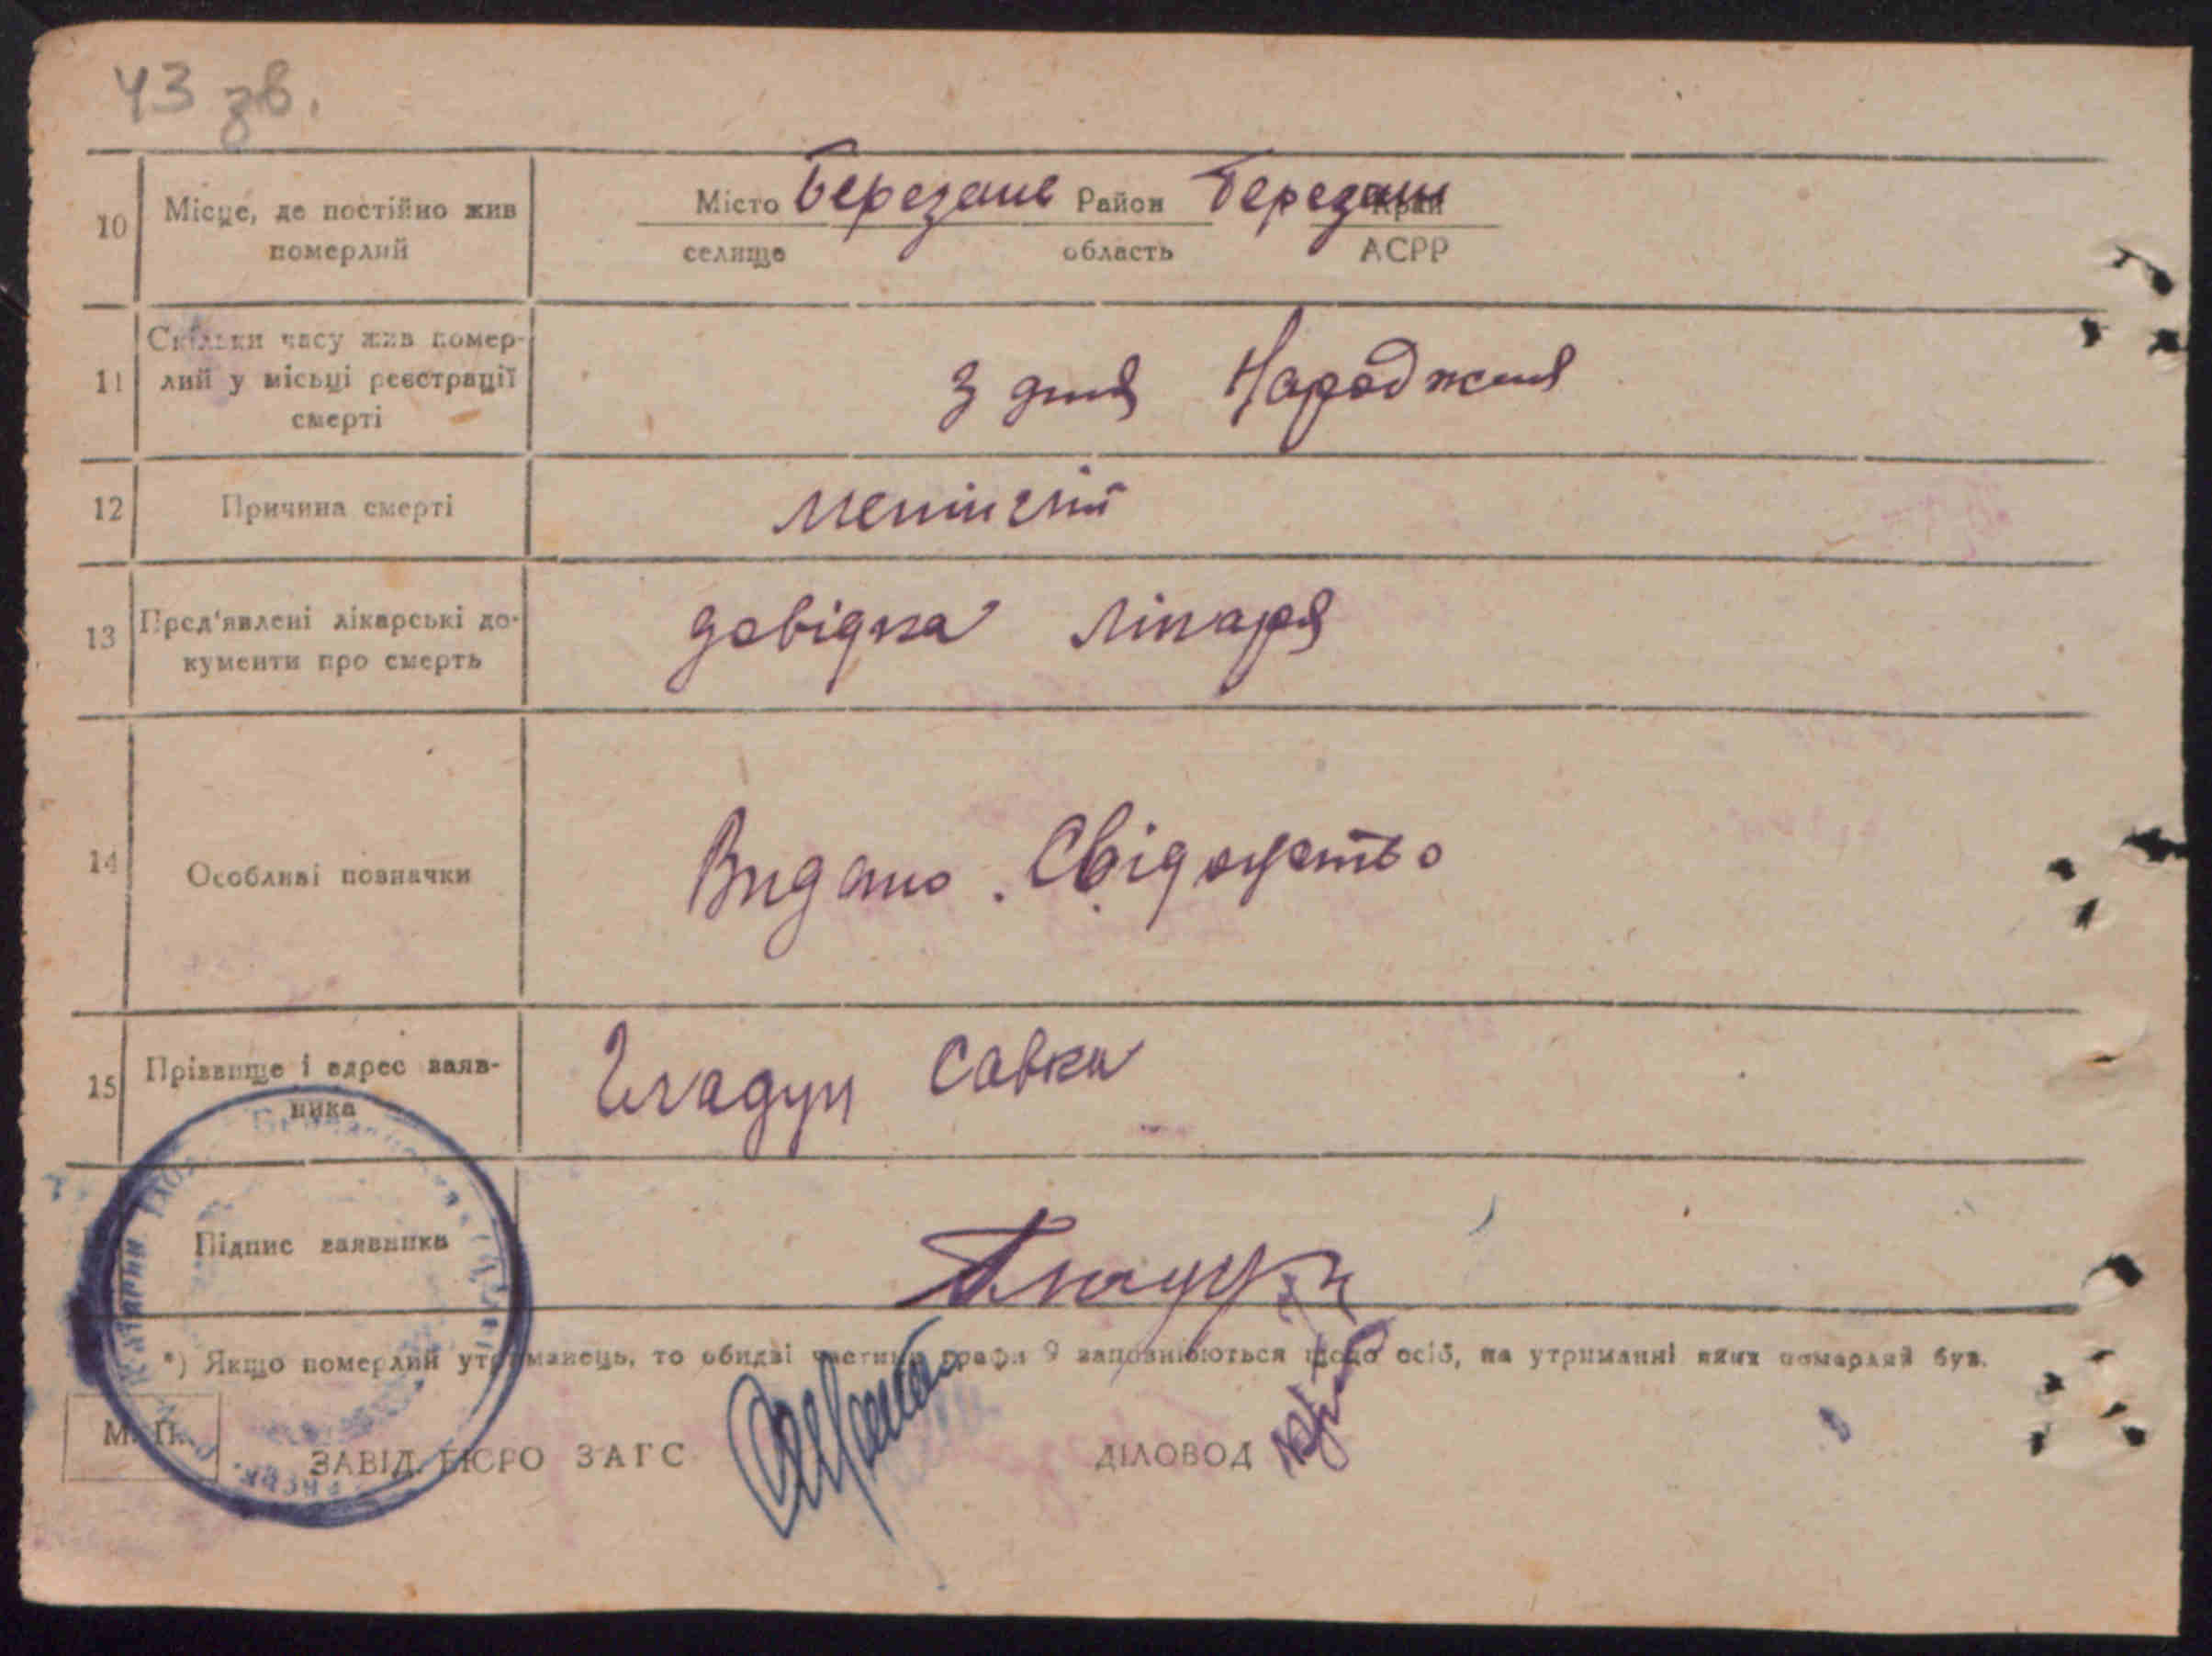 43 зв.
10 Місце, де постійно жив померлий
Місто Березане Район Березань Край
селище область АСРР
11 Скільки часу жив помер-
лий у місьці реєстрації
смерті
З дня Народженя
12 Причина смерті
менінгіт
13 Пред'явлені лікарські до-
кументи про смерть
довідка лікаря
14 Особливі позначки
Видано. Свідоцтво
15 Прізвище і адрес заяв-
ника
Гладун Савка
Підпис заявника
Гладун
*) Якщо померлий утриманець, то обидві частини графи 9 заповнюються щодо осіб, на утриманні яких померлий був.
М. П.
ЗАВІД. БЮРО ЗАГС
ДІЛОВОД